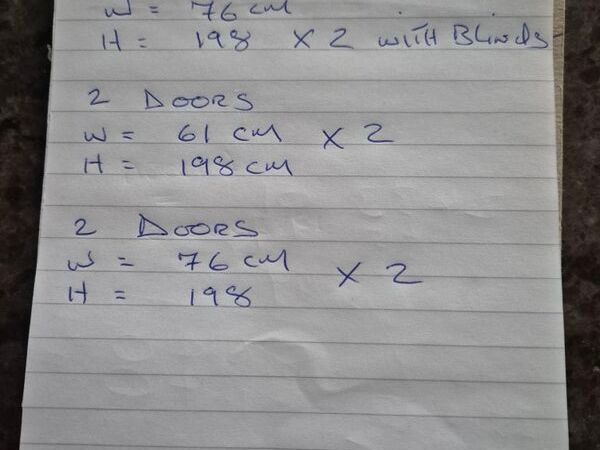 W = 76 cm
H = 198 X 2 WITH Blinds
2 DOORS
W = 61 cm X 2
H = 198 cm
2 DOORS
W = 76 cm X 2
H = 198